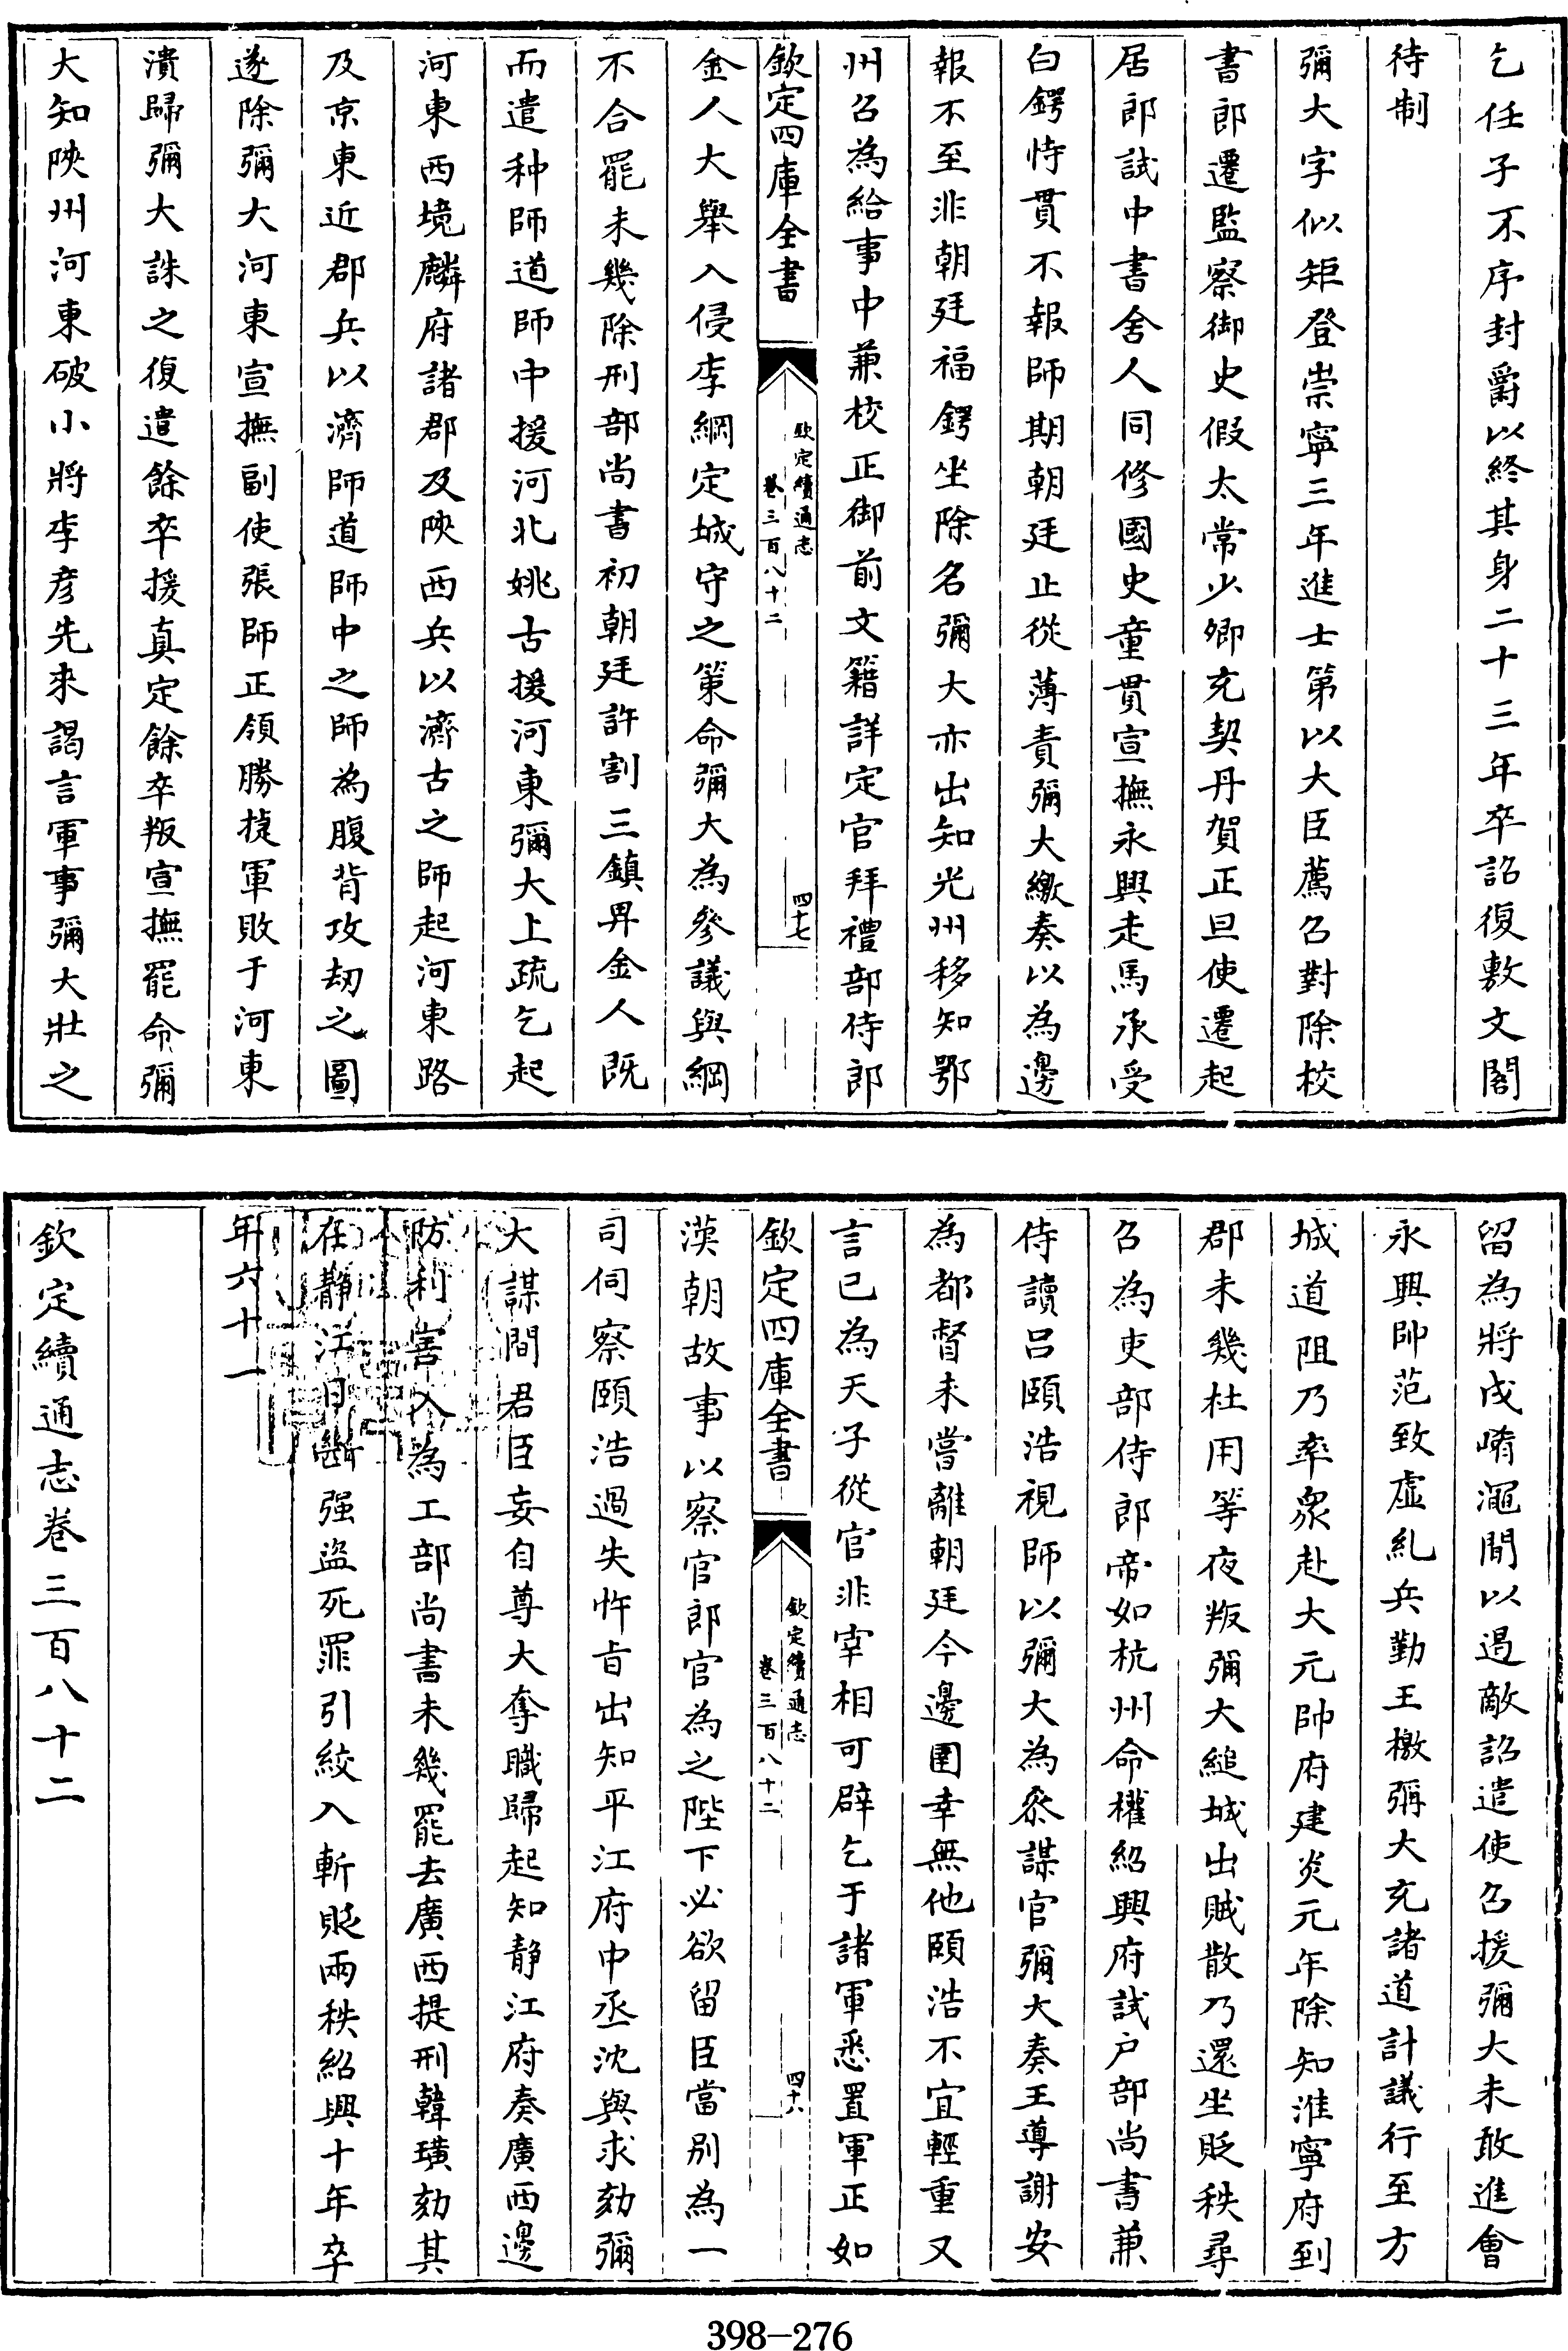 乞任子不序封爵以終其身二十三年卒詔復敷文閣
待制
彌大字似矩登崇寧三年進士第以大臣薦召對除校
書郎遷監察御史假太常少卿充契丹賀正旦使遷起
居郎試中書舍人同修國史童貫宣撫永興走馬承受
白鍔恃貫不報師期朝廷止從薄責彌大繳奏以為邊
報不至非朝廷福鍔坐除名彌大亦出知光州移知鄂
州召為給事中兼校正御前文籍詳定官拜禮部侍郎
欽定四庫全書
欽定續通志
卷三百八十二
四十七
金人大舉入侵李綱定城守之策命彌大為參議與綱
不合罷未幾除刑部尚書初朝廷許割三鎮畀金人既
而遣种師道師中援河北姚古援河東彌大上疏乞起
河東西境麟府諸郡及陜西兵以濟古之師起河東路
及京東近郡兵以濟師道師中之師為腹背攻刼之圖
遂除彌大河東宣撫副使張師正領勝捷軍敗于河東
潰歸彌大誅之復遣餘卒援真定餘卒叛宣撫罷命彌
大知陜州河東破小將李彥先來謁言軍事彌大壯之
留為將戍崤澠間以遏敵詔遣使召援彌大未敢進會
永興帥范致虛糺兵勤王檄彌大充諸道計議行至方
城道阻乃率衆赴大元帥府建炎元年除知淮寧府到
郡未幾杜用等夜叛彌大縋城出賊散乃還坐貶秩尋
召為吏部侍郎帝如杭州命權紹興府試户部尚書兼
侍讀吕頤浩視師以彌大為叅謀官彌大奏王導謝安
為都督未嘗離朝廷今邊圉幸無他頤浩不宜輕重又
言已為天子從官非宰相可辟乞于諸軍悉置軍正如
欽定四庫全書
欽定續通志
卷三百八十二
四十八
漢朝故事以察官郎官為之陛下必欲留臣當別為一
司伺察頤浩過失忤旨出知平江府中丞沈與求劾彌
大謀間君臣妄自尊大奪職歸起知静江府奏廣西邊
防利害入為工部尚書未幾罷去廣西提刑韓璜劾其
在靜江日斷强盜死罪引絞入斬貶兩秩紹興十年卒
年六十一
欽定續通志卷三百八十二
398-276